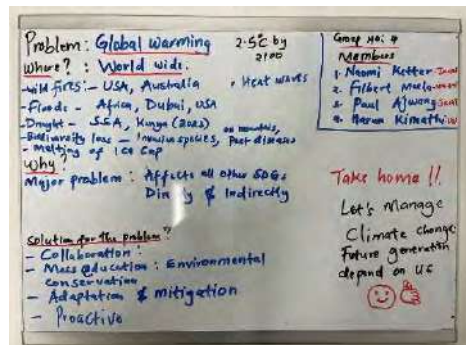 Problem: Global warming 2.5°c by 2100
Where? : World wide.
- Wild fires:- USA, Australia • Heat waves
- Floods - Africa, Dubai, USA
- Drought - S.S.A, Kenya (2022)
- Biodiversity loss - Invasive species, Pest diseases
- Melting of Ice Cap on mountains,
Why?
Major problem : Affects all other SDGs
Directly & Indirectly
Solution for the problem?
- Collaboration:
- Mass education : Environmental
conservation
- Adaptation & mitigation
- Proactive
Group No: 4
Members
1. Naomi Ketter
2. Filbert
3. Paul Ajwang
4. Haron Kimathi
Take home !!
Let's Manage
Climate change
Future generation
depend on US